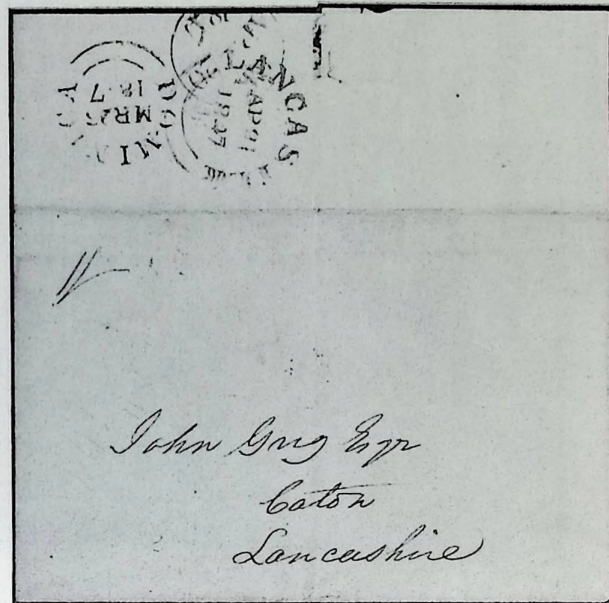 DOMINICA
MR 25
1847
LANCASTER
AP 21
1847
John Greg Esqr
Caton
Lancashire